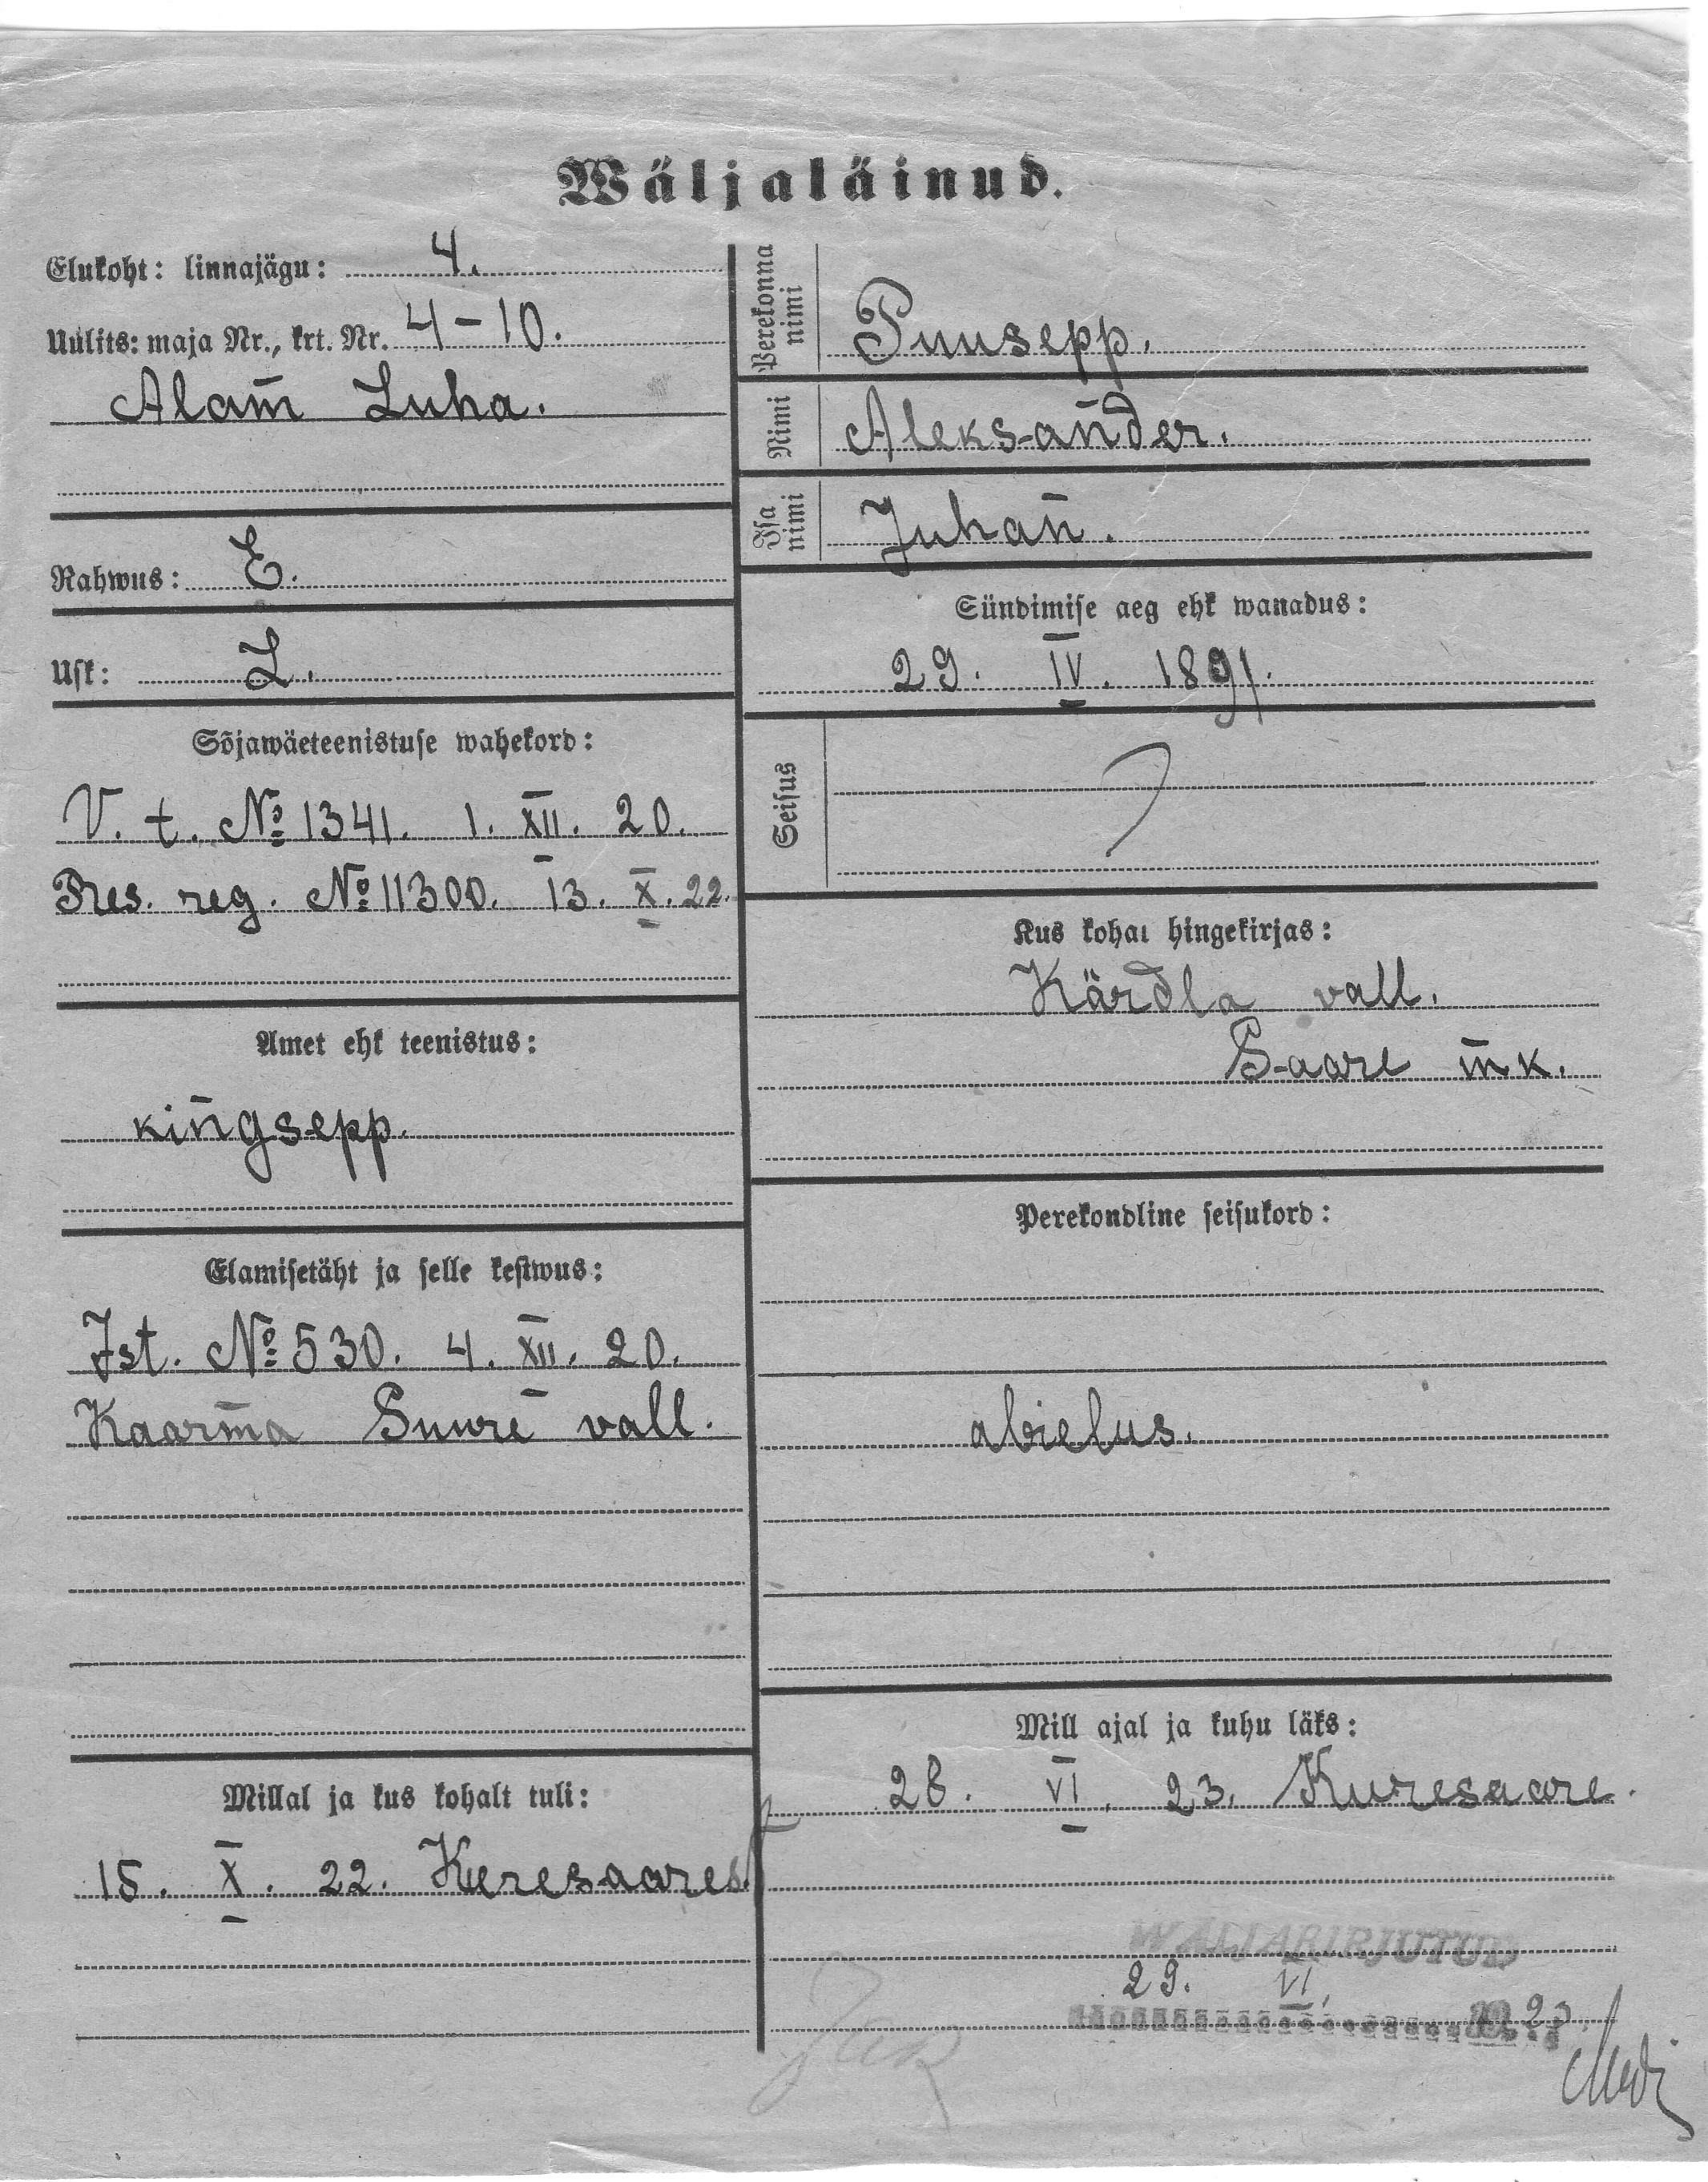 Wäljaläinud.
Elukoht: linnajägu: 4.
Uulits: maja Nr., krt. Nr. 4-10.
Alam Luha.
Rahwus: E.
Usk: L.
Sõjawäeteenistuse wahekord:
V. t. № 1341. 1. XII. 20.
Res. reg. № 11300. 13. X. 22.
Amet ehk teenistus:
kingsepp.
Elamisetäht ja selle kestwus:
Ist. № 530. 4. XII. 20.
Kaarma Suure vall.
Millal ja kus kohalt tuli:
15. X. 22. Kuresaarest
Perekonna nimi Puusepp.
Nimi Aleksander.
Isa nimi Juhan.
Sündimise aeg ehk wanadus:
29. IV. 1891.
Seisus
Kus kohal hingekirjas:
Kärdla vall.
Saare mk.
Perekondline seisukord:
abielus.
Mill ajal ja kuhu läks:
28. VI. 23. Kuresaare.
WÄLJAKIRJUTUD
29. VI. 23.